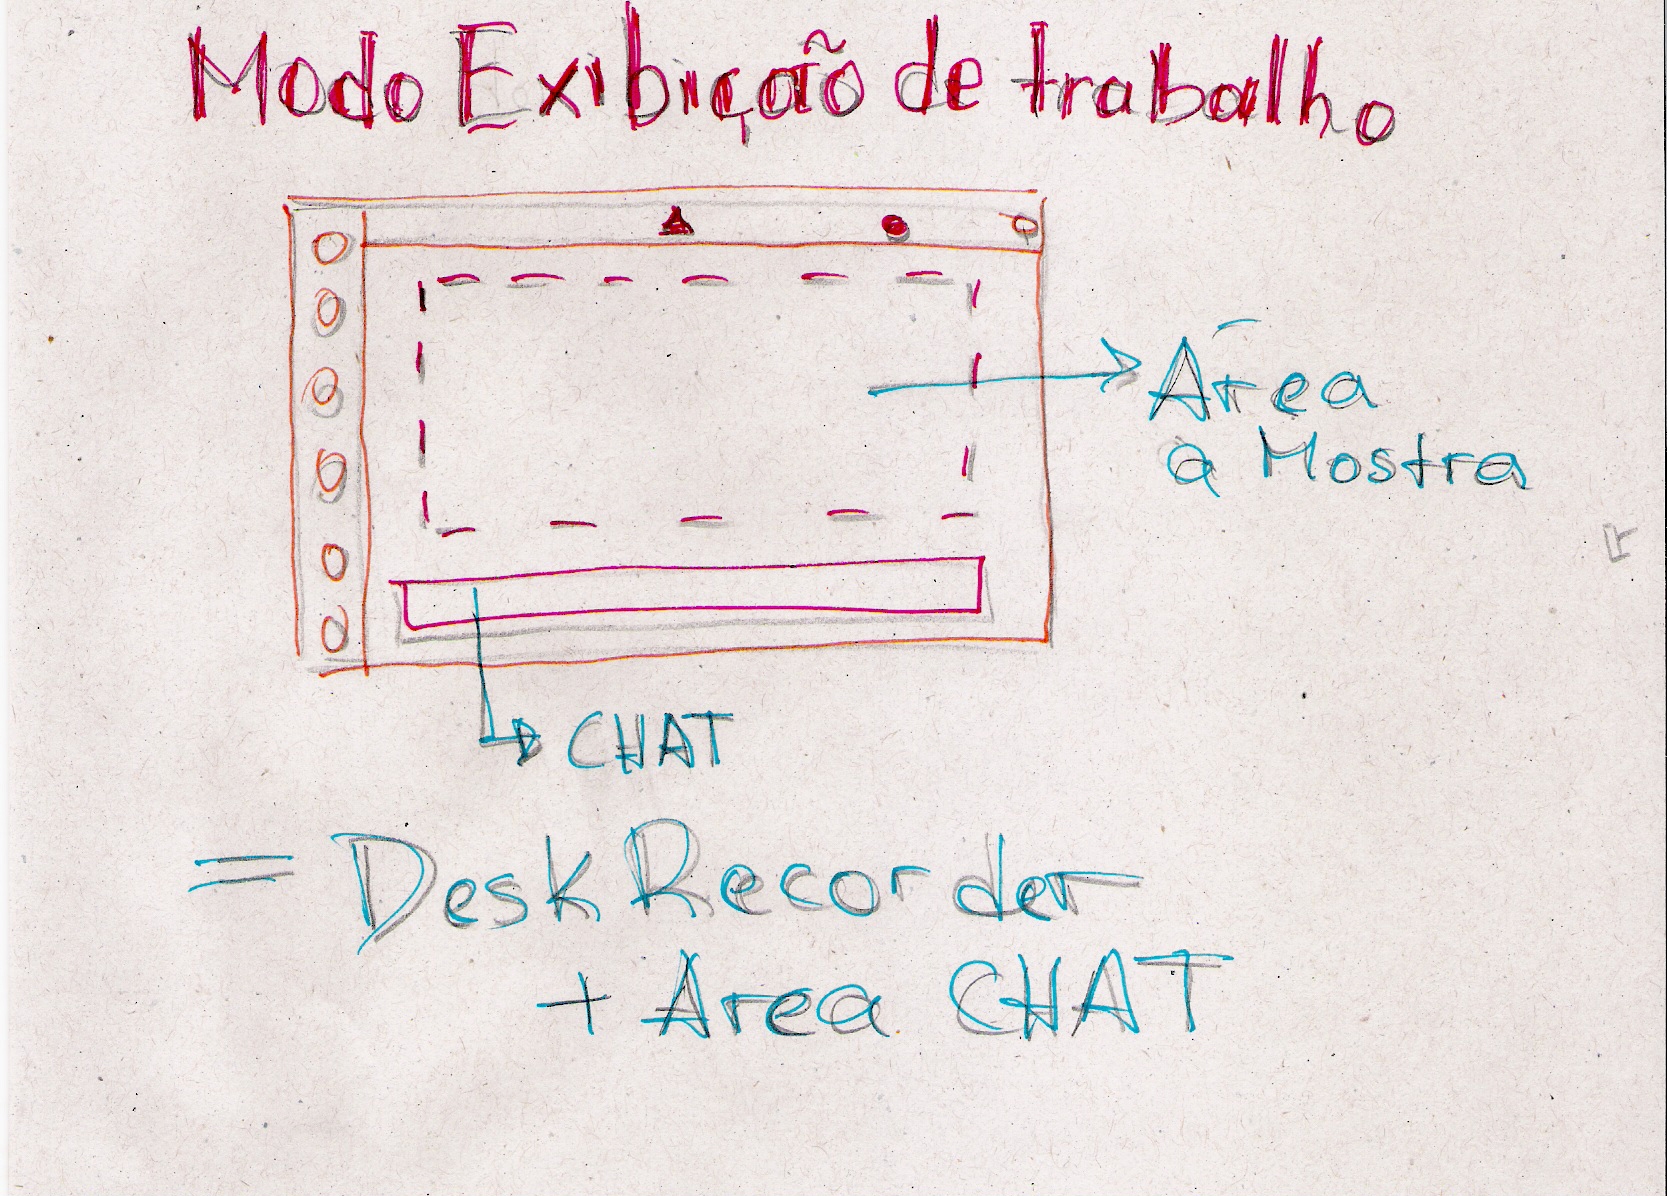 Modo Exibição de trabalho
Área
a Mostra
CHAT
= Desk Recorder
+ Area CHAT